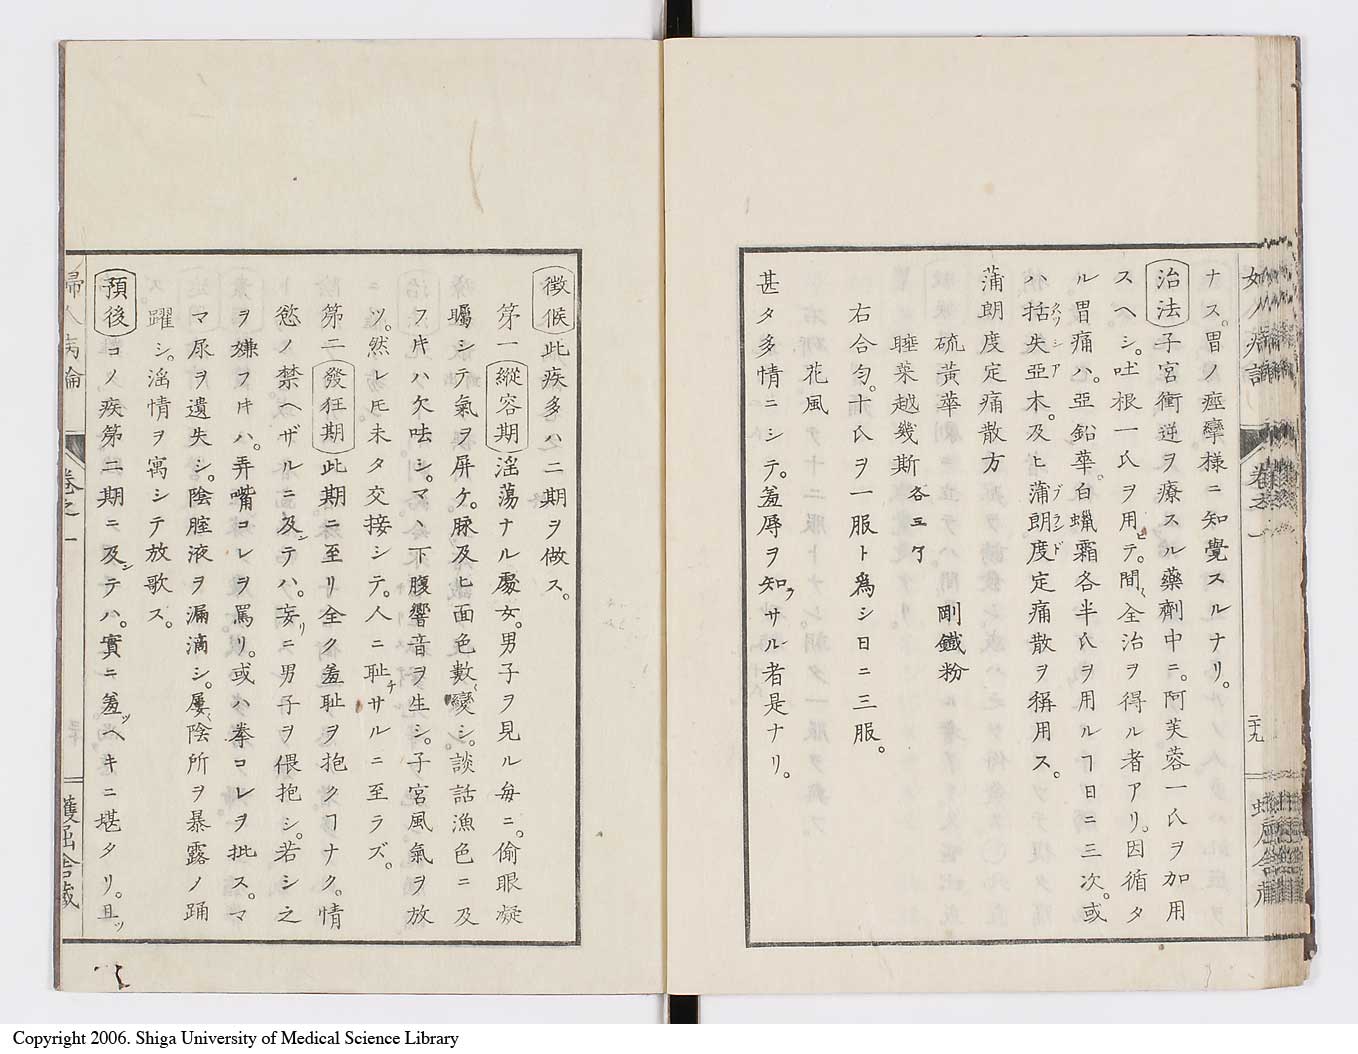 ナス。胃ノ痙攣様ニ知覺スルナリ。
治法 子宮衝逆ヲ療スル藥劑中ニ。阿芙蓉一氏ヲ加用
スヘシ。吐根一氏ヲ用テ。間〻全治ヲ得ル者アリ。因循タ
ル胃痛ハ。亞鉛華。白蠟霜各半氏ヲ用ルヿ日ニ三次。或
ハ括失亞木。及ヒ蒲朗度定痛散ヲ稱用ス。
蒲朗度定痛散方
硫黃華 剛鐵粉
睡菜越幾斯 各
右合匀。十氏ヲ一服ト爲シ日ニ三服。
花風
甚タ多情ニシテ。羞辱ヲ知ラサル者是ナリ。
二十九
徴候 此疾多ハ二期ヲ做ス。
第一 縱容期 淫蕩ナル處女。男子ヲ見ル毎ニ。偷眼凝
矚シテ氣ヲ屏ケ。脉及ヒ面色數〻變シ。談話漁色ニ及
フ片ハ欠呿シ。マヽ下腹響音ヲ生シ。子宮風氣ヲ放
ツ。然レ𪜈未タ交接シテ。人ニ耻チサルニ至ラズ。
第二 發狂期 此期ニ至リ全ク羞耻ヲ抱クヿナク。情
慾ノ禁ヘザルニ及テハ。妄リニ男子ヲ偎抱シ。若シ之
ヲ嫌フ片ハ。弄嘴コレヲ罵リ。或ハ拳コレヲ批ス。マ
マ尿ヲ遺失シ。陰腟液ヲ漏滴シ。屢〻陰所ヲ暴露ノ踊
躍シ。淫情ヲ寓シテ放歌ス。
預後 コノ疾第二期ニ及テハ。實ニ羞ツヘキニ堪タリ。且ツ
婦人病論 卷之一 蠖屈舍藏
Copyright 2006. Shiga University of Medical Science Library